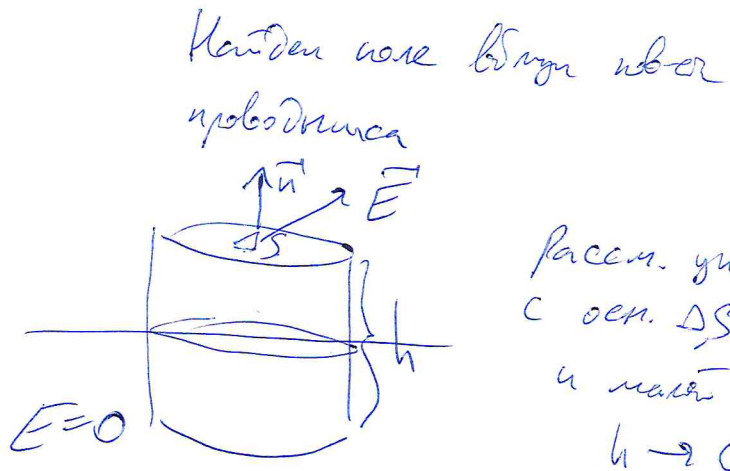 Найдем поле вблизи пов-си
проводника
n⃗
E⃗
ΔS
Рассм.
с осн. ΔS
h
и малой
E=0
h → 0